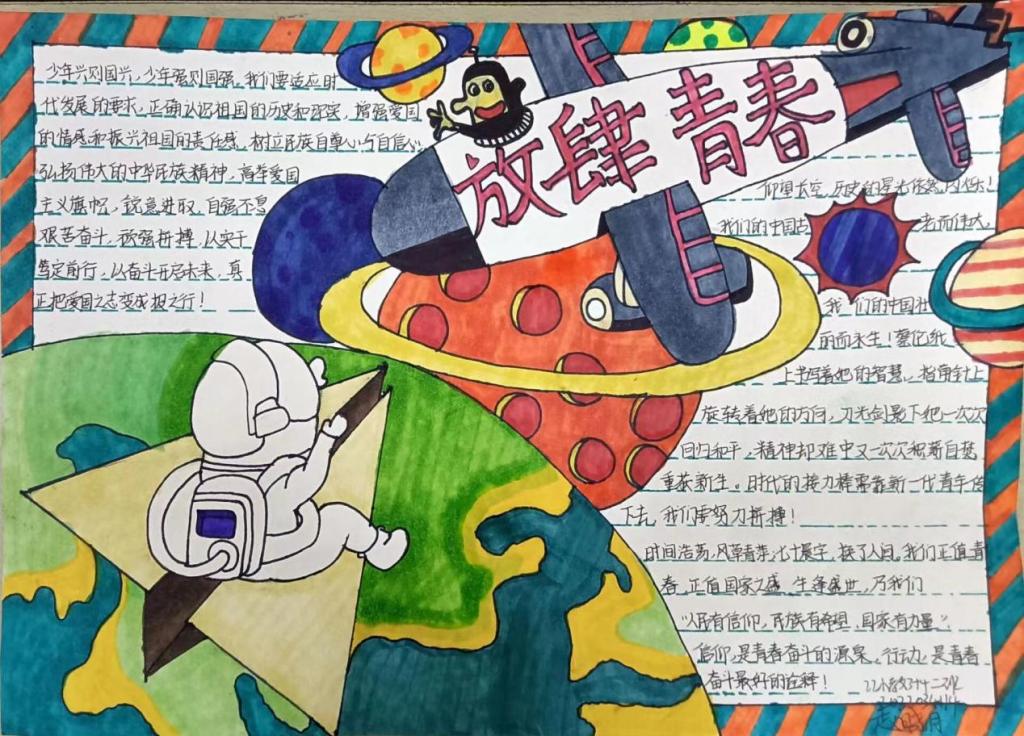 放肆青春
少年兴则国兴，少年强则国强，我们要适应时
代发展的要求，正确认识祖国的历史和现实，增强爱国
的情感和振兴祖国的责任感，树立民族自尊心与自信心，
弘扬伟大的中华民族精神，高举爱国
主义旗帜，锐意进取，自强不息
艰苦奋斗，顽强拼搏，从实于
笃定前行，以奋斗开启未来，真
正把爱国之志变成报之行！
仰望太空，历史的星光依然闪烁！
我们的中国古 老而伟大，
我们的中国壮
丽而永生！
上书写着她的智慧，指南针上
旋转着他的方向，刀光剑影下她一次次
回归和平，精神却难中又一次次
重获新生。时代的接力棒需靠新一代青年
下去，我们要努力拼搏！
时间浩荡，风草青芽，七十寰宇，换了人间。我们正值青
春，正值国家之盛，生逢盛世，乃我们
“人民有信仰，民族有希望，国家有力量”。
信仰，是青春奋斗的源泉。行动，是青春
奋斗最好的诠释！